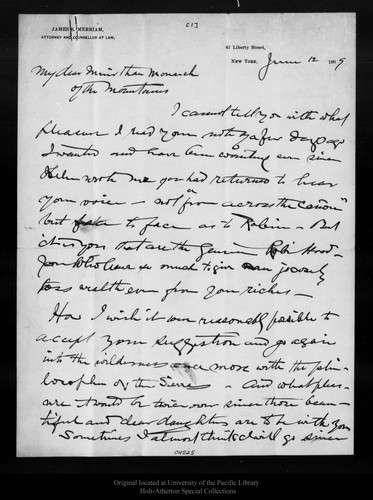 C13
JAMES S. MERRIAM,
ATTORNEY AND COUNSELLOR AT LAW,
41 Liberty Street,
NEW YORK, June 12 1909
My dear Muir than Monarch
of the Mountains
I cannot tell you with what
pleasure I read your note a few days ago
I wanted and have been counting ever since
Helen wrote me you had returned to hear
your voice — not "from across the cañon"
but face to face as to Robin — But
it is you that are the Robin Hood —
you who have so much to give
wealth even from your riches —
How I wish it were reasonably possible to
accept your suggestion and go again
into the wilderness once more with the philosopher
of the Sierra — And what pleasure
it would be twice over since those beautiful
and dear daughters are to be with you
Sometimes I almost think I will go since
04525
Original located at University of the Pacific Library
Holt-Atherton Special Collections